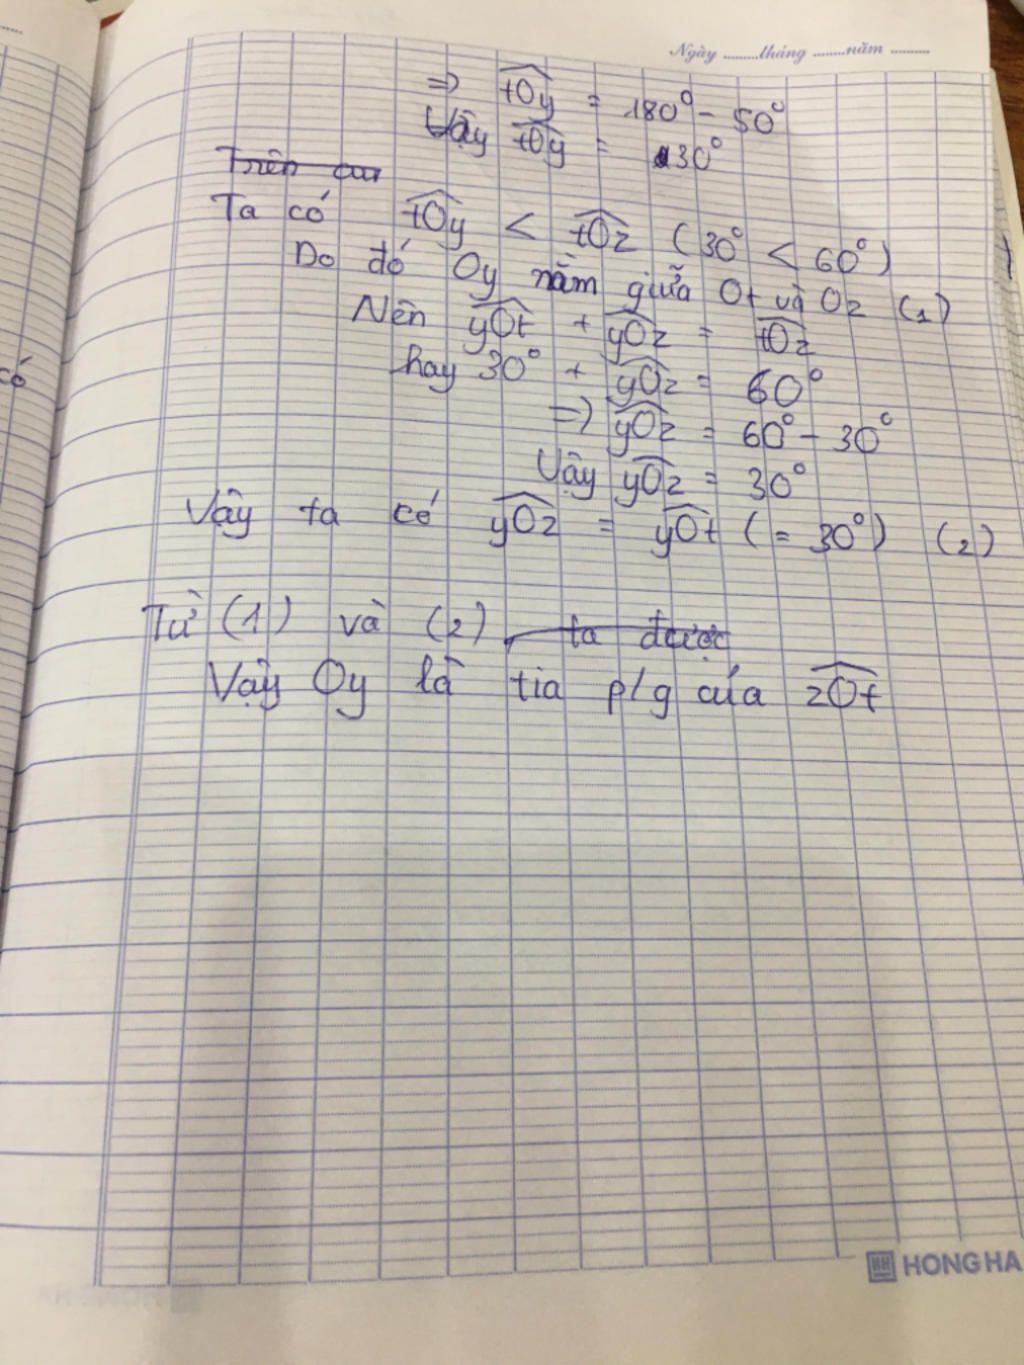 Ngày ........tháng ........năm ........
=> tOy = 180° - 50°
Vậy tOy = 30°
Trên
Ta có tOy < tOz (30° < 60°)
Do đó Oy nằm giữa Ot và Oz (1)
Nên yOt + yOz = tOz
hay 30° + yOz = 60°
=> yOz = 60° - 30°
Vậy yOz = 30°
Vậy ta có yOz = yOt (= 30°) (2)
Từ (1) và (2), ta được
Vậy Oy là tia p/g của zOt
có
HONG HA